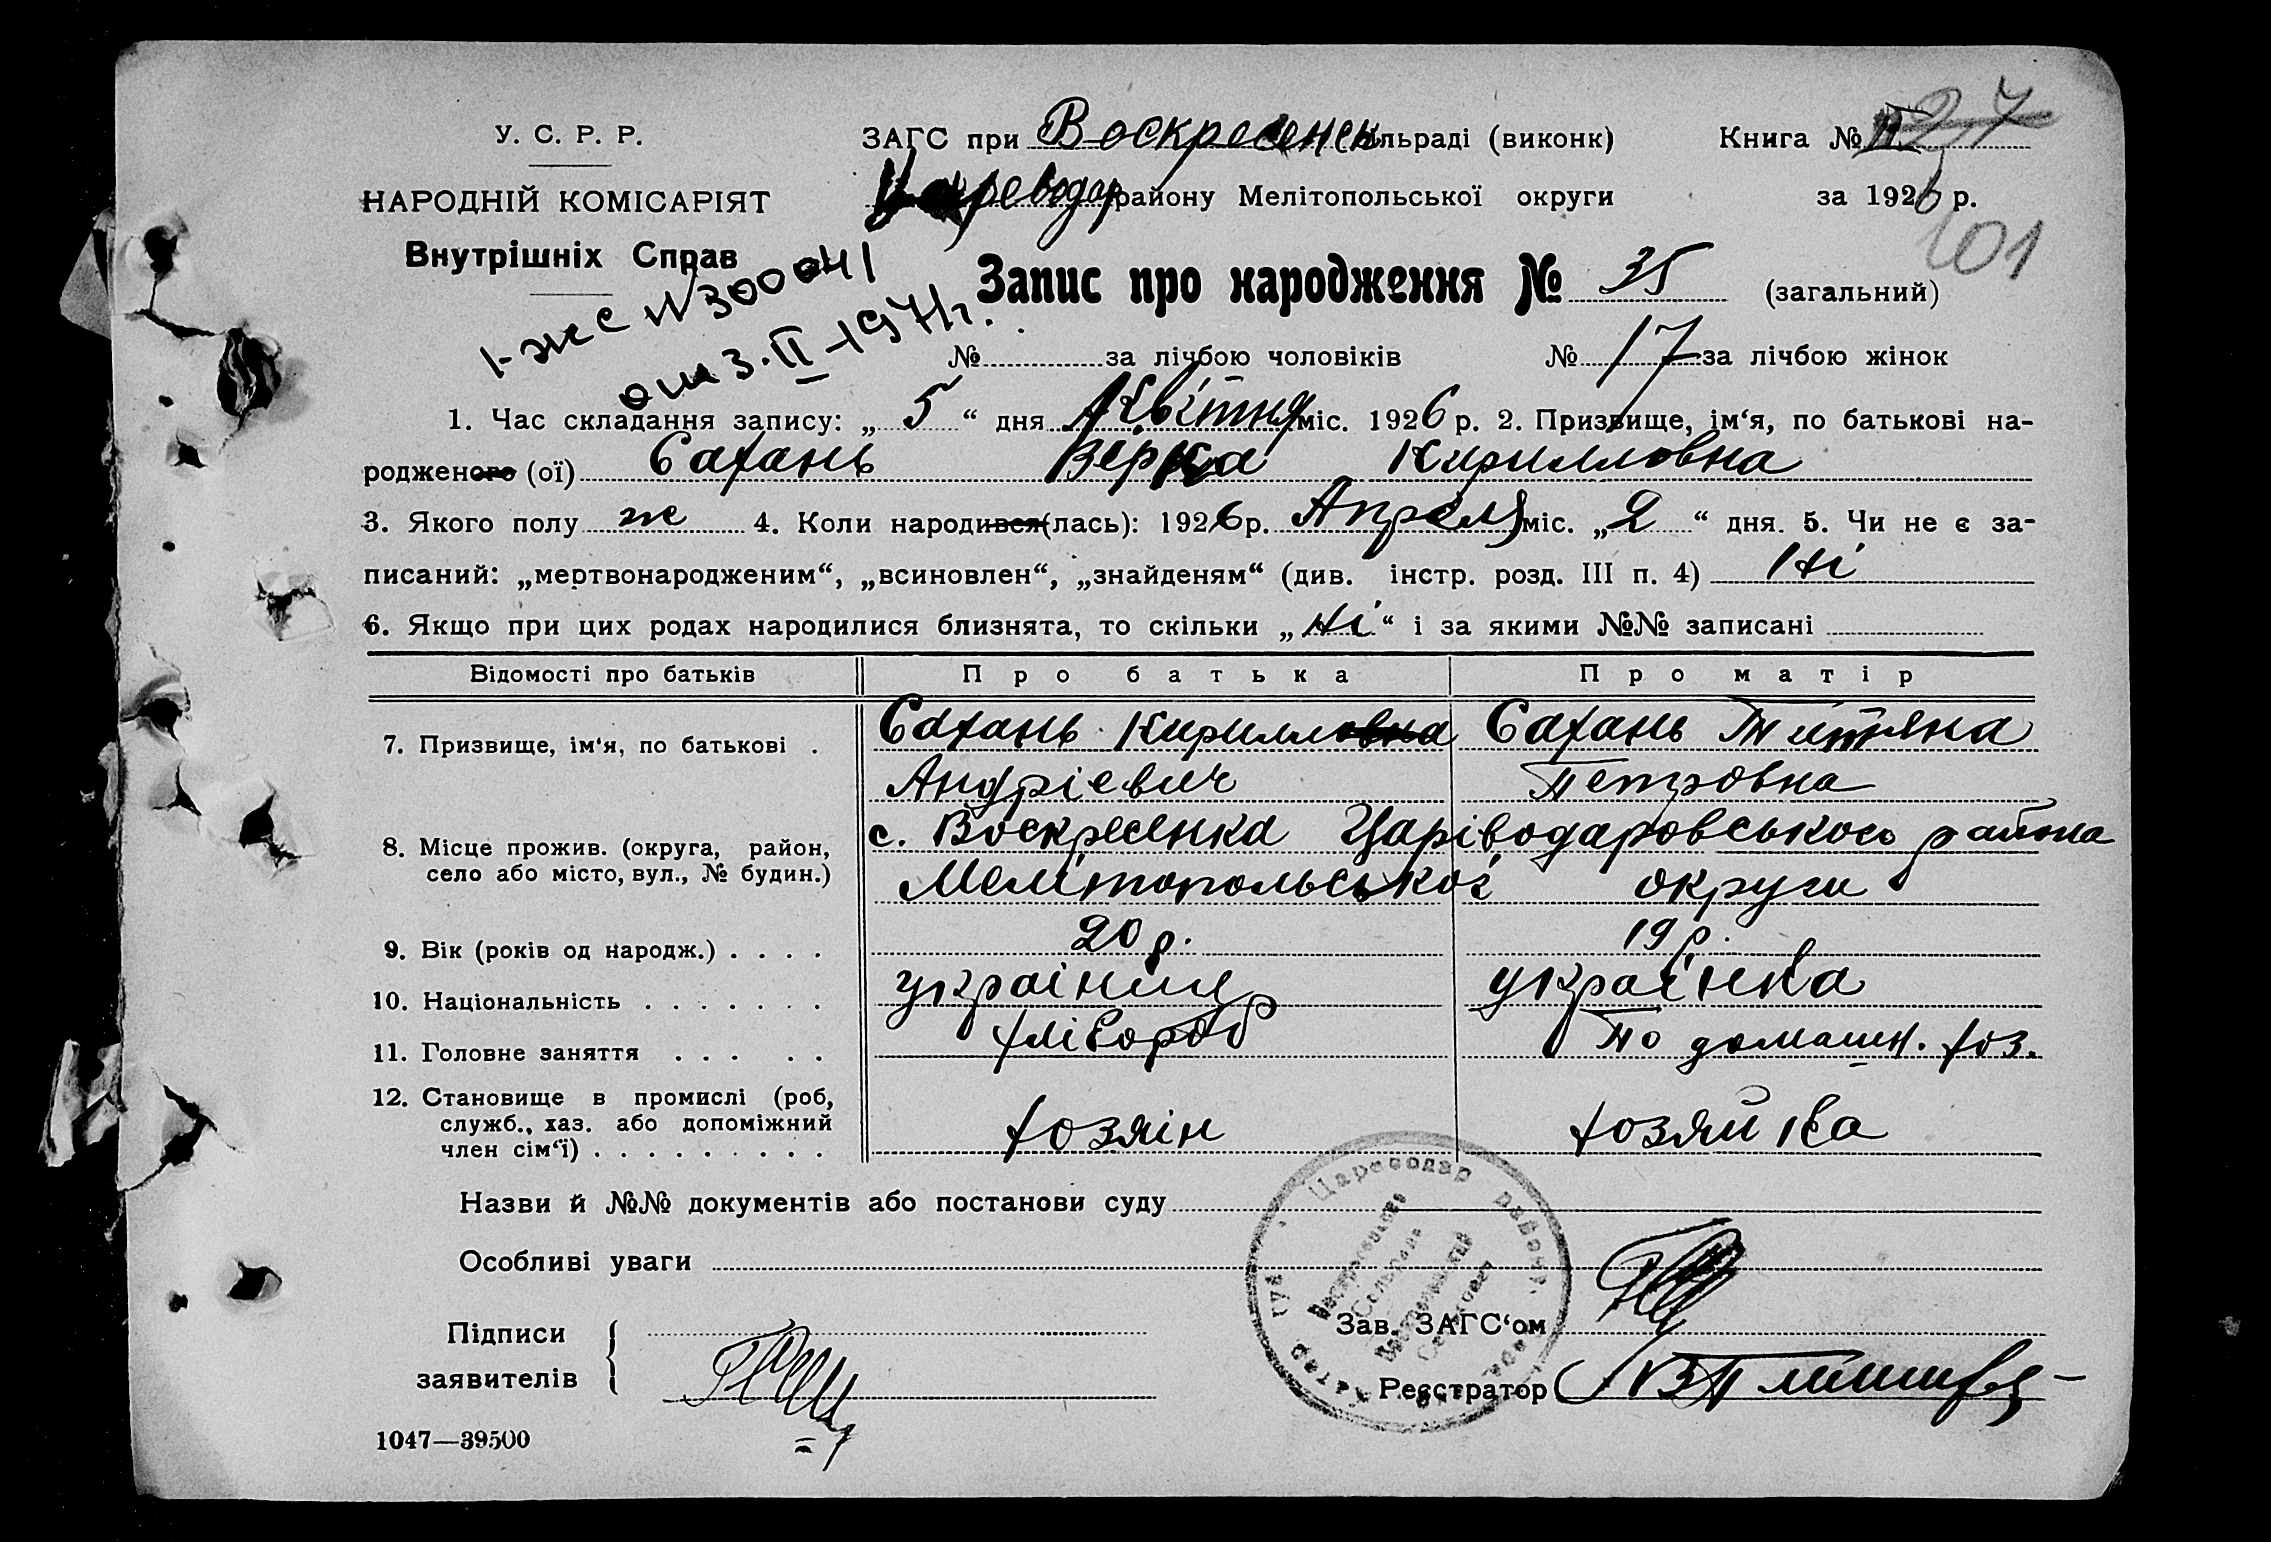 У. С. Р. Р.
НАРОДНІЙ КОМІСАРІЯТ
Внутрішніх Справ
ЗАГС при Воскресенск сільраді (виконк)
Книга № 27
Цареводар району Мелітопольської округи
за 1926 р.
101
1-жс N300041
от 3.II-1971г.
Запис про народження № 35 (загальний)
№ за лічбою чоловіків № 17 за лічбою жінок
1. Час складання запису: „ 5 “ дня Квітня міс. 1926 р. 2. Призвище, ім‘я, по батькові на-
родженого (ої) Сахань Вера Кирилловна
3. Якого полу ж 4. Коли народився (лась): 1926 р. Апреля міс. „ 2 “ дня. 5. Чи не є за-
писаний: „мертвонародженим“, „всиновлен“, „знайденям“ (див. інстр. розд. III п. 4) Ні
6. Якщо при цих родах народилися близнята, то скільки „ Ні “ і за якими №№ записані
Відомості про батьків Про батька Про матір
7. Призвище, ім‘я, по батькові . Сахань Кирилловна Сахань Титяна
Андрієвич Петровна
8. Місце прожив. (округа, район,
село або місто, вул., № будин.)
с. Воскресенка Царіводаровського района
Мелітопольської округи
9. Вік (років од народж.) . . . . 20 р. 19 р.
10. Національність . . . . . . . українец українка
11. Головне заняття . . . . . хлібороб По домашн. хоз.
12. Становище в промислі (роб,
служб., хаз. або допоміжний
член сім‘ї) . . . . . . . . . хозяін хозяйка
Назви й №№ документів або постанови суду
Цареводар району
Особливі уваги
Підписи
заявителів
Зав. ЗАГС‘ом
Реєстратор
1047—39500